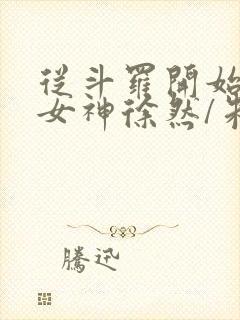 從斗羅開始
女神徐然/朱
騰迅